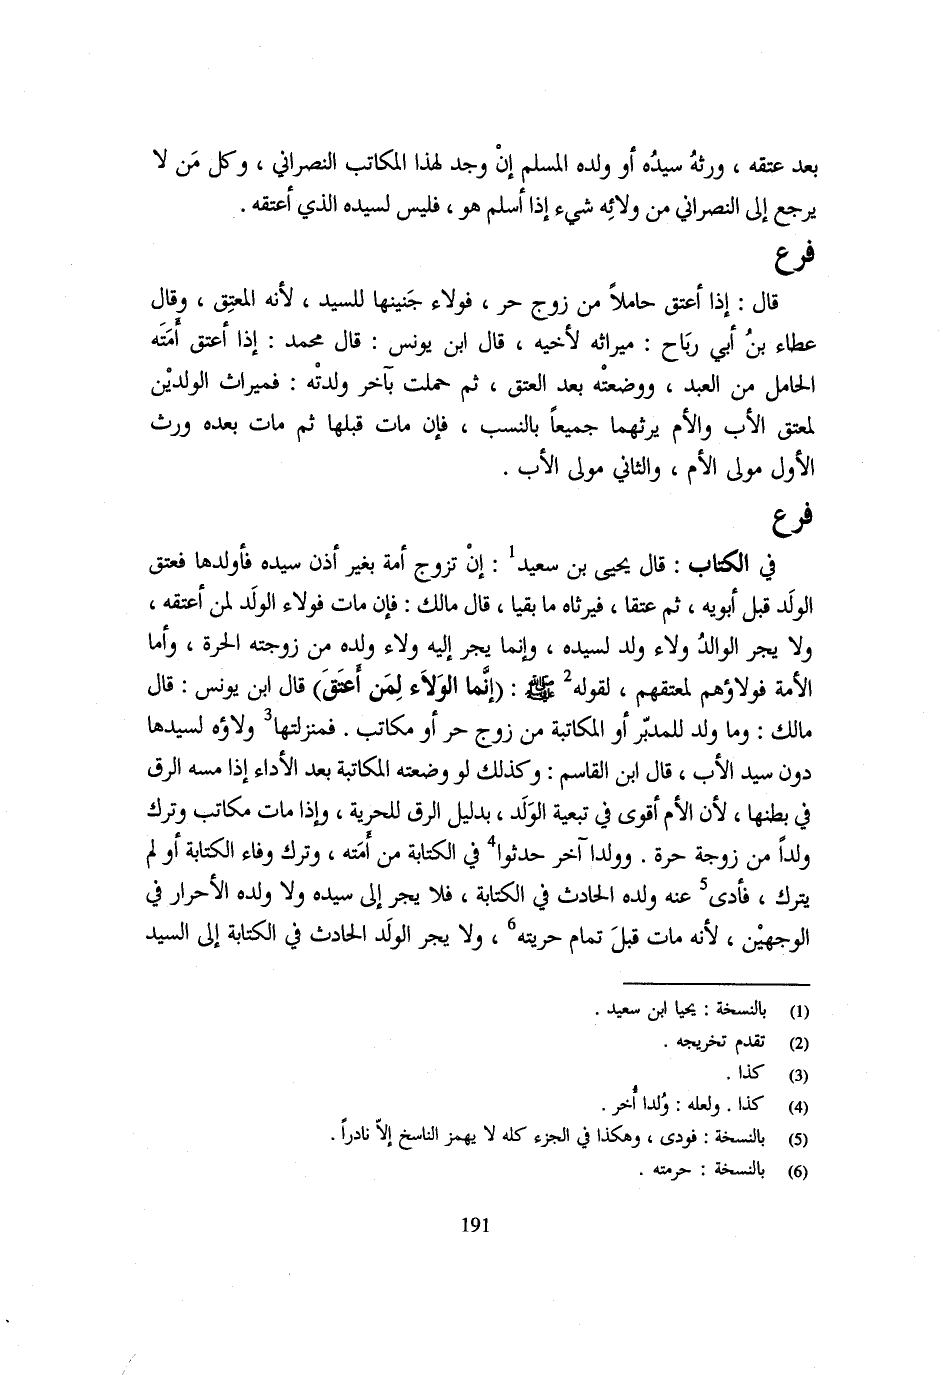 بعد عتقه ، ورثهُ سيدُه أو ولده المسلم إنْ وجد لهذا المكاتب النصراني ، وكل مَن لا
يرجع إلى النصراني من ولائِه شيء إذا أسلم هو ، فليس لسيده الذي أعتقه .
فرع
قال : إذا أعتق حاملاً من زوج حر ، فولاء جَنينها للسيد ، لأنه المعتِق ، وقال
عطاء بنُ أبي ربَاح : ميراثه لأخيه ، قال ابن يونس : قال محمد : إذا أعتق أَمَتَه
الحامل من العبد ، ووضعتْه بعد العتق ، ثم حملت بآخر ولدتْه : فميراث الولديْن
لمعتق الأب والأم يرثهما جميعاً بالنسب ، فإن مات قبلها ثم مات بعده ورث
الأول مولى الأم ، والثاني مولى الأب .
فرع
في الكتاب : قال يحيى بن سعيد1 : إنْ تزوج أمة بغير أذن سيده فأولدها فعتق
الولَد قبل أبويه ، ثم عتقا ، فيرثاه ما بقيا ، قال مالك : فإن مات فولاء الولَد لمن أعتقه ،
ولا يجر الوالدُ ولاء ولد لسيده ، وإنما يجر إليه ولاء ولده من زوجته الحرة ، وأما
الأمة فولاؤهم لمعتقهم ، لقوله2 ﷺ : (إنَّما الوَلاَء لِمَن أعتَقَ) قال ابن يونس : قال
مالك : وما ولد للمدبّر أو المكاتبة من زوج حر أو مكاتب . فمنزلتها3 ولاؤه لسيدها
دون سيد الأب ، قال ابن القاسم : وكذلك لو وضعته المكاتبة بعد الأداء إذا مسه الرق
في بطنها ، لأن الأم أقوى في تبعية الوَلَد ، بدليل الرق للحرية ، وإذا مات مكاتب وترك
ولداً من زوجة حرة . وولدا آخر حدثوا4 في الكتابة من أَمَته ، وترك وفاء الكتابة أو لم
يترك ، فأدى5 عنه ولده الحادث في الكتابة ، فلا يجر إلى سيده ولا ولده الأحرار في
الوجهيْن ، لأنه مات قبلَ تمام حريته6 ، ولا يجر الولَد الحادث في الكتابة إلى السيد
(1) بالنسخة : يحيا ابن سعيد .
(2) تقدم تخريجه .
(3) كذا .
(4) كذا . ولعله : وُلدا أُخر .
(5) بالنسخة : فودى ، وهكذا في الجزء كله لا يهمز الناسخ إلاّ نادراً .
(6) بالنسخة : حرمته .
191